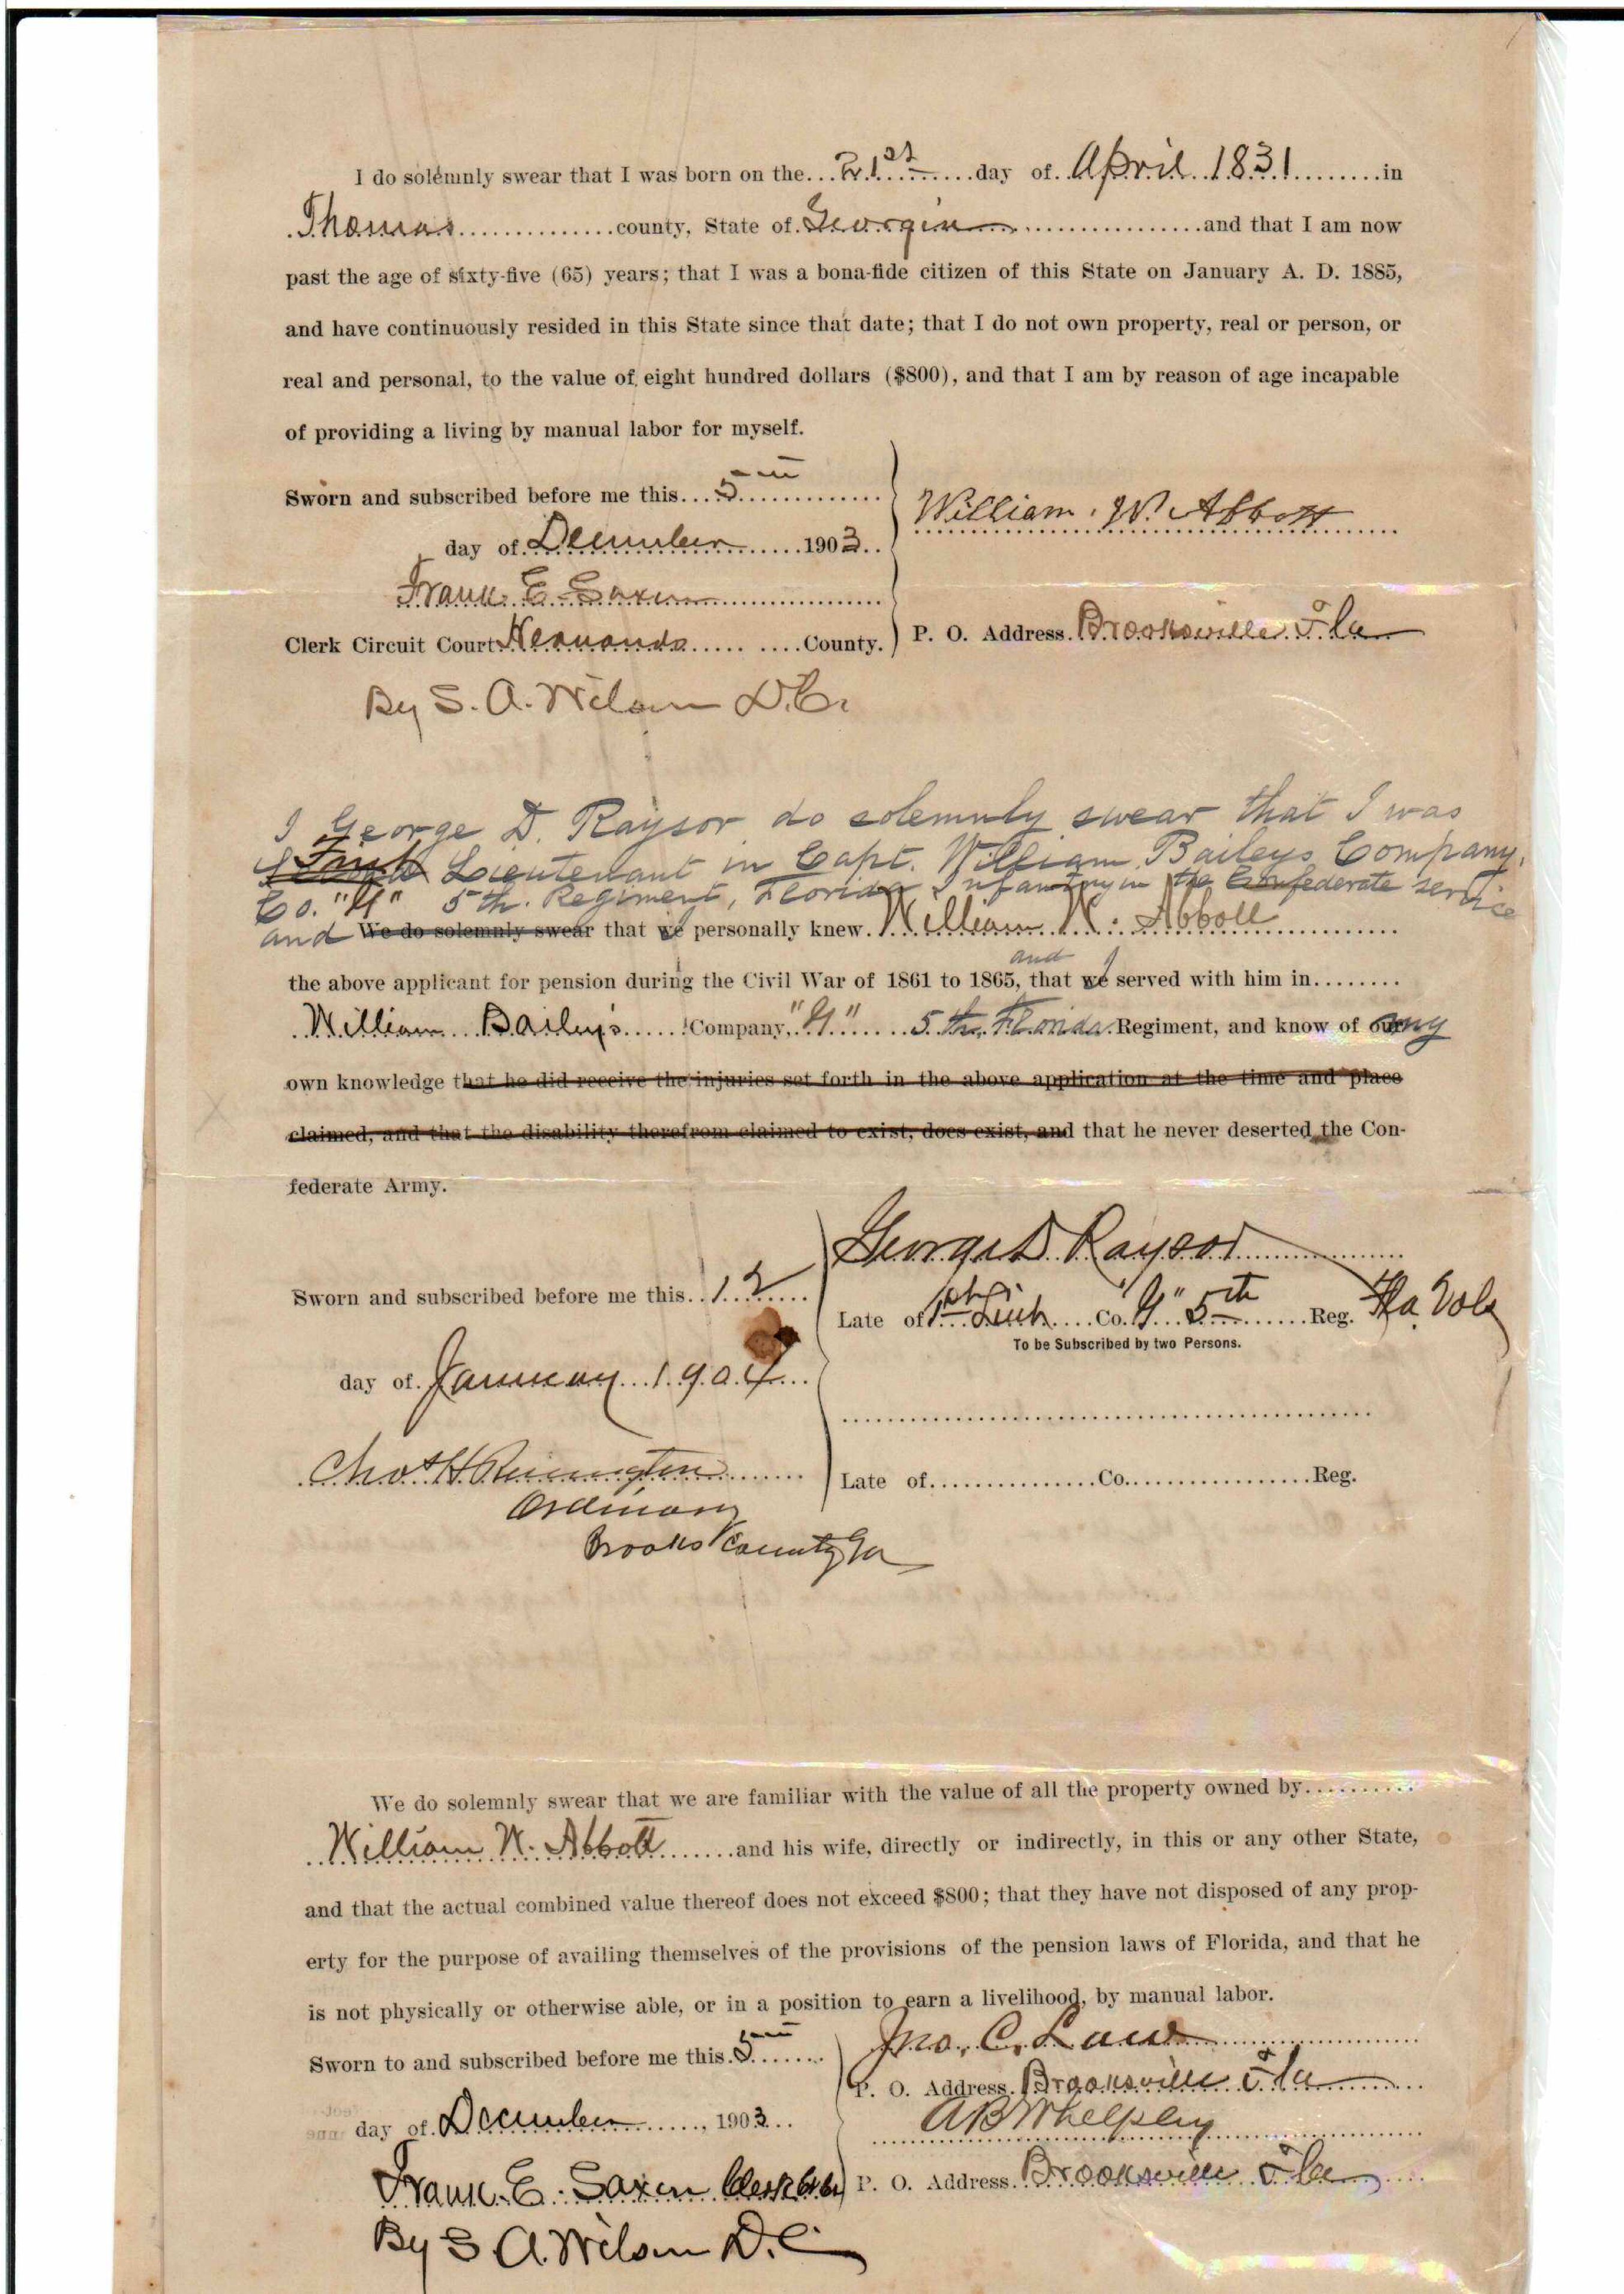 I do solemnly swear that I was born on the 21st day of April 1831 in
Thomas county, State of Georgia and that I am now
past the age of sixty-five (65) years; that I was a bona-fide citizen of this State on January A. D. 1885,
and have continuously resided in this State since that date; that I do not own property, real or person, or
real and personal, to the value of eight hundred dollars ($800), and that I am by reason of age incapable
of providing a living by manual labor for myself.
Sworn and subscribed before me this 5th
William W. Abbott
day of December 1903
Frank E. Saxon
Clerk Circuit Court Hernando County.
P. O. Address. Brooksville Fla
By S. A. Wilson D.C.
I George D. Raysor do solemnly swear that I was
Lieutenant in Capt. William Baileys Company,
Co. "G" 5th. Regiment, Florida Infantry in the Confederate service
and We do solemnly swear that we personally knew William W. Abbott
and I
the above applicant for pension during the Civil War of 1861 to 1865, that we served with him in
William Bailey's Company, "G" 5th. Florida Regiment, and know of our my
own knowledge that he did receive the injuries set forth in the above application at the time and place
claimed, and that the disability therefrom claimed to exist, does exist, and that he never deserted the Con-
federate Army.
George D Raysor
Sworn and subscribed before me this 12
Late of 1st Lieut Co. "G" 5th Reg. Fla. Vols
To be Subscribed by two Persons.
day of January 1904
Late of Co. Reg.
Chas H Remington
Ordinary
Brooks County Ga
We do solemnly swear that we are familiar with the value of all the property owned by
William W. Abbott and his wife, directly or indirectly, in this or any other State,
and that the actual combined value thereof does not exceed $800; that they have not disposed of any prop-
erty for the purpose of availing themselves of the provisions of the pension laws of Florida, and that he
is not physically or otherwise able, or in a position to earn a livelihood, by manual labor.
Jno. C. Law
Sworn to and subscribed before me this 5th
P. O. Address. Brooksville Fla
day of December, 1903
A B Whelpley
Frank E. Saxon Clerk
P. O. Address Brooksville Fla
By S. A. Wilson D.C.